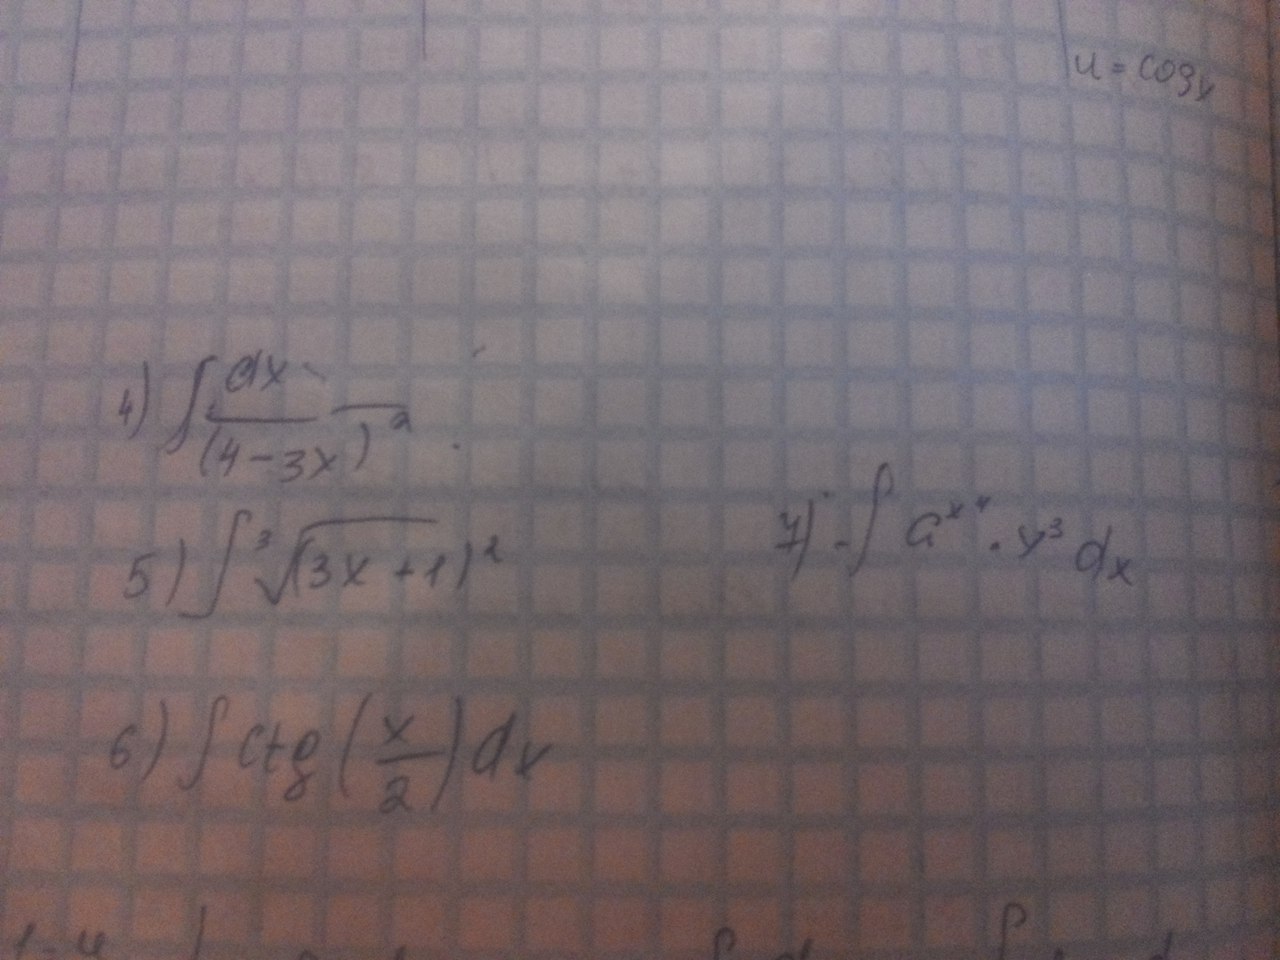 u = cosx
4) ∫ dx / (4-3x)²
5) ∫ ³√(3x+1)²
7) ∫ a^x⁴ · x³ dx
6) ∫ ctg (x/2) dx